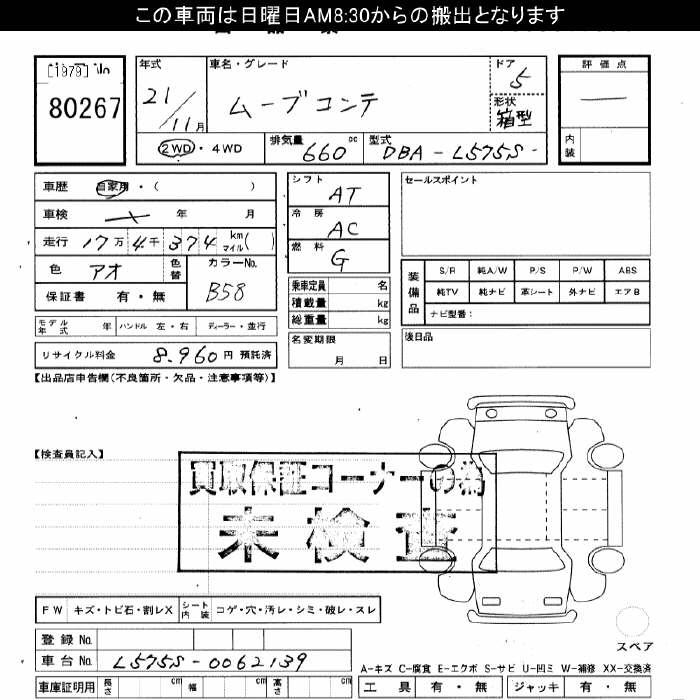 この車両は日曜日AM8:30からの搬出となります
[1979] No
80267
年式 21/11月
車名・グレード ムーブコンテ
ドア 5
形状 箱型
評価点 —
内装
2WD・4WD
排気量 660 cc
型式 DBA-L575S-
車歴 自家用・( )
車検 年 月
走行 17万4千374 km マイル( )
色 アオ 色替
カラーNo. B58
保証書 有・無
シフト AT
冷房 AC
燃料 G
乗車定員 名
積載量 kg
総重量 kg
セールスポイント
装備品
S/R 純A/W P/S P/W ABS
純TV 純ナビ 革シート 外ナビ エアB
ナビ型番:
モデル年式 年 ハンドル 左・右 ディーラー・並行
名変期限 月 日
後日品
リサイクル料金 8,960円 預託済
【出品店申告欄(不良箇所・欠品・注意事項等)】
【検査員記入】
買取保証コーナーの為
未検査
FW キズ・トビ石・割レX シート内装 コゲ・穴・汚レ・シミ・破レ・スレ
スペア
登録No.
車台No. L575S-0062139
A-キズ C-腐食 E-エクボ S-サビ U-凹ミ W-補修 XX-交換済
車庫証明用 長さ cm 幅 cm 高さ cm
工具 有・無 ジャッキ 有・無